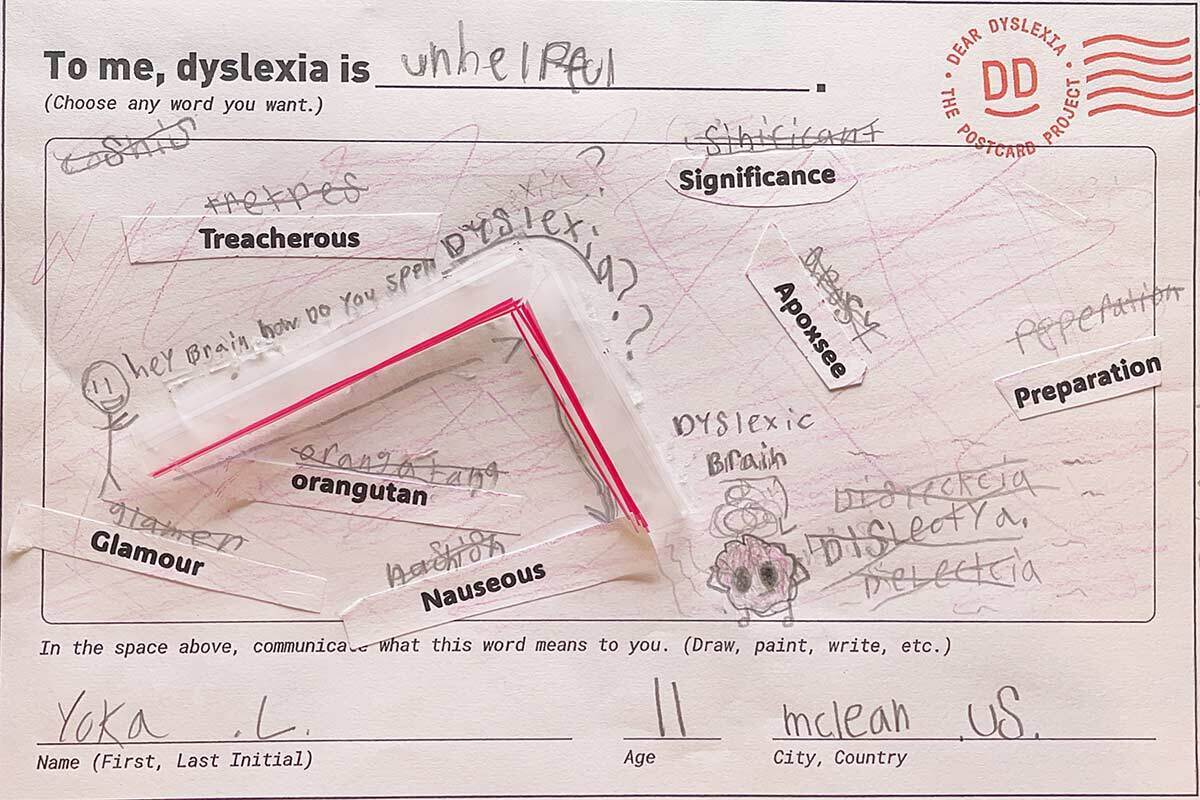 To me, dyslexia is unhelpful.
(Choose any word you want.)
• DEAR DYSLEXIA •
DD
THE POSTCARD PROJECT
Sinificant
Significance
Treacherous
hey Brain, how Do You spell DYslexia???
Apoxsee
peperation
Preparation
DYslexic
Brain
orangatang
orangutan
glamer
Glamour
Nauseous
Disleckcia
DISLectYa.
Dielectcia
In the space above, communicate what this word means to you. (Draw, paint, write, etc.)
Yoka .L.
11
mclean .US.
Name (First, Last Initial)
Age
City, Country